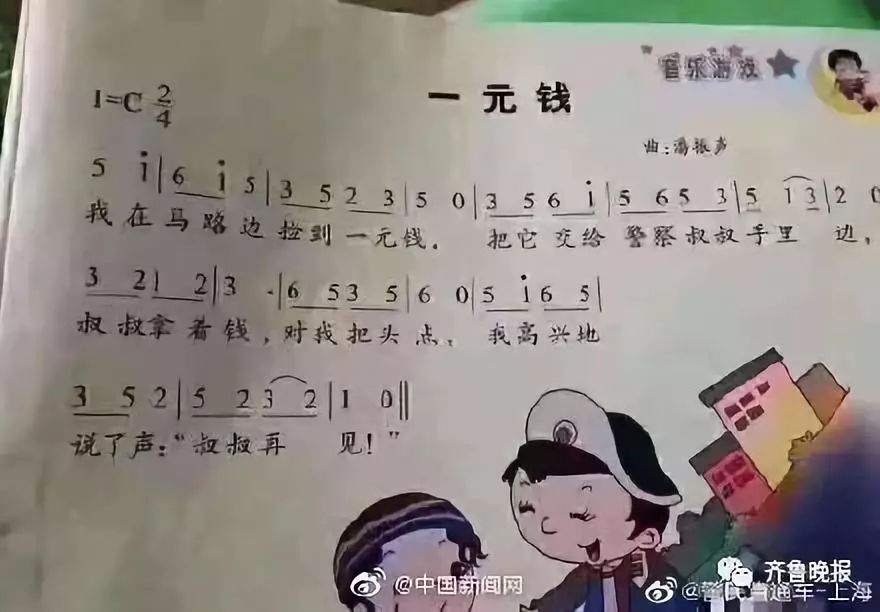 音乐游戏
1=C 2/4
一元钱
曲:潘振声
5 i| 6 i 5| 3 5 2 3| 5 0| 3 5 6 i| 5 6 5 3| 5 1 3| 2 0
我在马路边捡到一元钱。 把它交给警察叔叔手里 边,
3 2 1 2| 3 ·| 6 5 3 5| 6 0| 5 i 6 5|
叔叔拿着钱,对我把头点。 我高兴地
3 5 2| 5 2 3 2| 1 0||
说了声:“叔叔再 见!”
@中国新闻网
齐鲁晚报
@警民直通车-上海